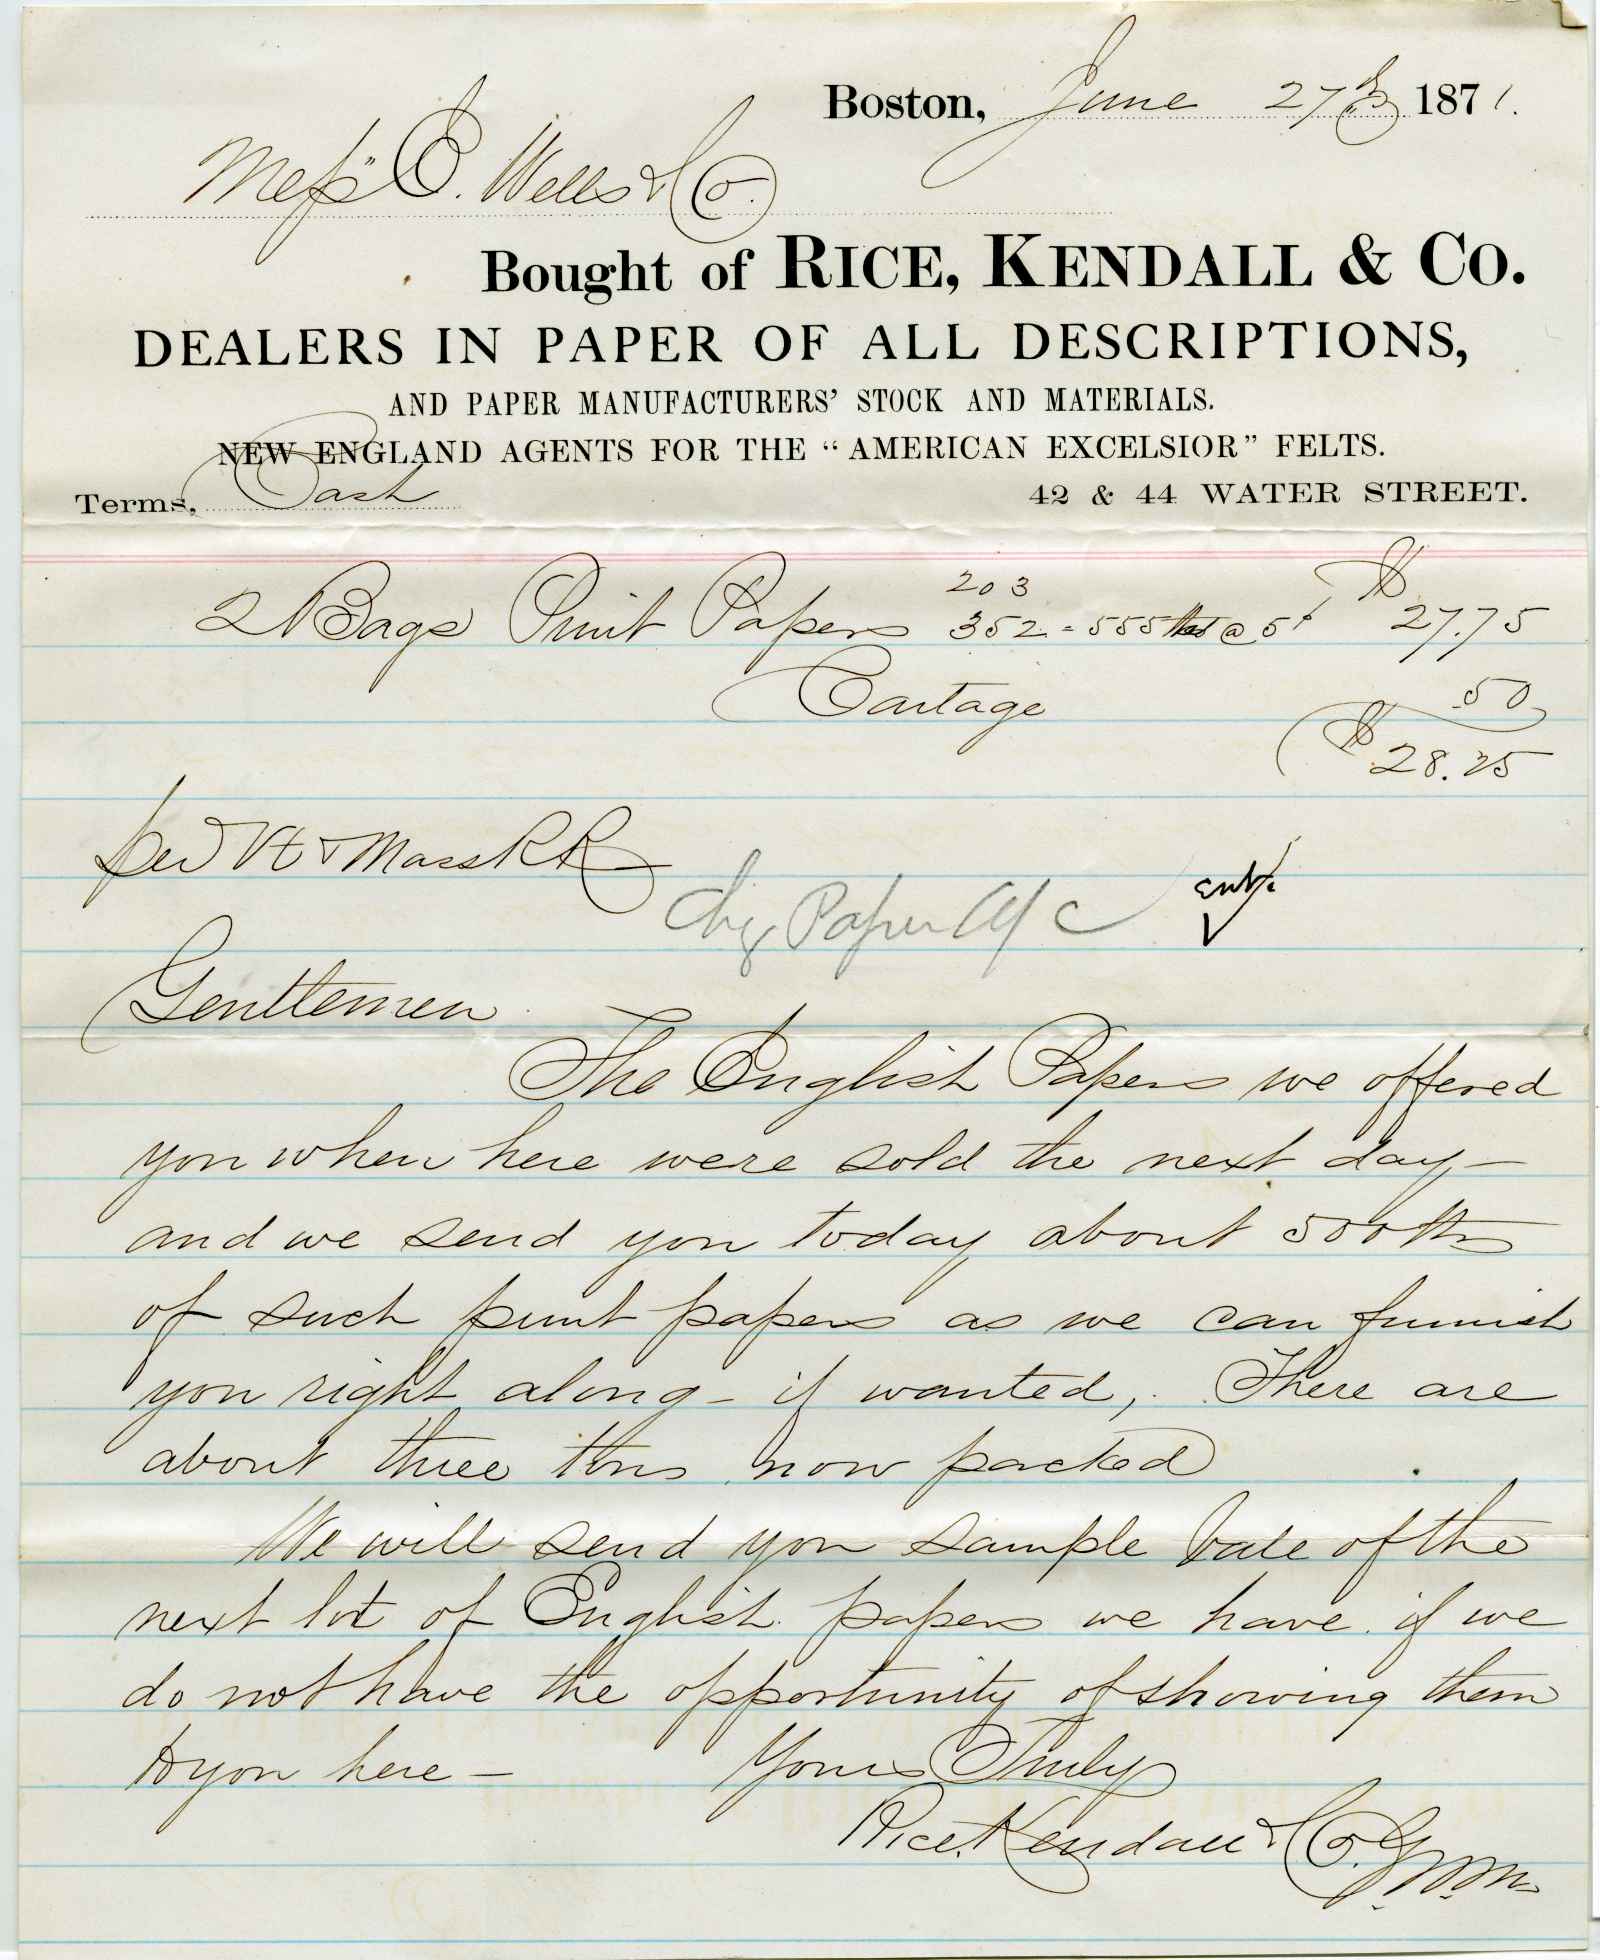 Boston, June 27th 1871.
Mess" E. Wells & Co.
Bought of RICE, KENDALL & Co.
DEALERS IN PAPER OF ALL DESCRIPTIONS,
AND PAPER MANUFACTURERS' STOCK AND MATERIALS.
NEW ENGLAND AGENTS FOR THE "AMERICAN EXCELSIOR" FELTS.
Terms, Cash 42 & 44 WATER STREET.
203 $
2 Bags Print Papers 352 = 555 lbs @ 5¢ 27.75
Cartage .50
$ 28.25
per V & Mass RR
Chg Paper A/c
Gentlemen
The English Papers we offered
you when here were sold the next day -
and we send you today about 500 lbs
of such print papers as we can furnish
you right along - if wanted, . There are
about three tons now packed
We will send you sample bale of the
next lot of English papers we have if we
do not have the opportunity of showing them
to you here - Yours Truly
Rice, Kendall & Co.